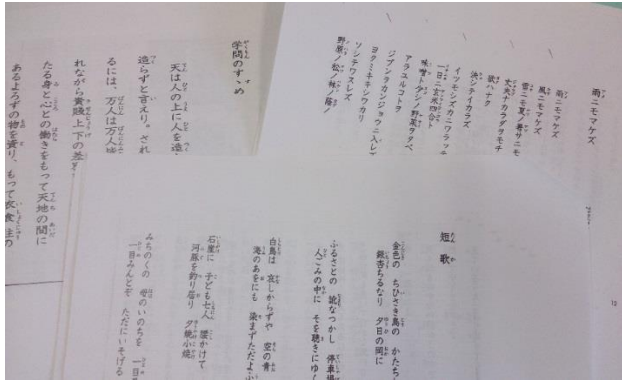 雨ニモマケズ
雨ニモマケズ
風ニモマケズ
雪ニモ夏ノ暑サニモ
丈夫ナカラダヲモチ
欲ハナク
決シテイカラズ
イツモシズカニワラッテ
一日ニ玄米四合ト
味噌ト少シノ野菜ヲタベ
アラユルコトヲ
ジブンヲカンジョウニ入レ
ヨクミキキシワカリ
ソシテワスレズ
野原ノ松ノ林ノ蔭ノ
学問のすゝめ
天は人の上に人を造
造らずと言えり。され
るには、万人は万人
れながら貴賤上下の差
たる身と心との働きをもって天地の間に
あるよろずの物を資り、もって衣食住の
短歌
金色の ちひさき鳥の かたち
銀杏ちるなり 夕日の岡に
ふるさとの 訛なつかし 停車場
人ごみの中に そを聴きにゆく
白鳥は 哀しからずや 空の青
海のあをにも 染まずただよふ
石崖に 子ども七人 腰かけて
河豚を釣り居り 夕焼小焼
みちのくの 母のいのちを 一目
一目みんとぞ ただにいそげる